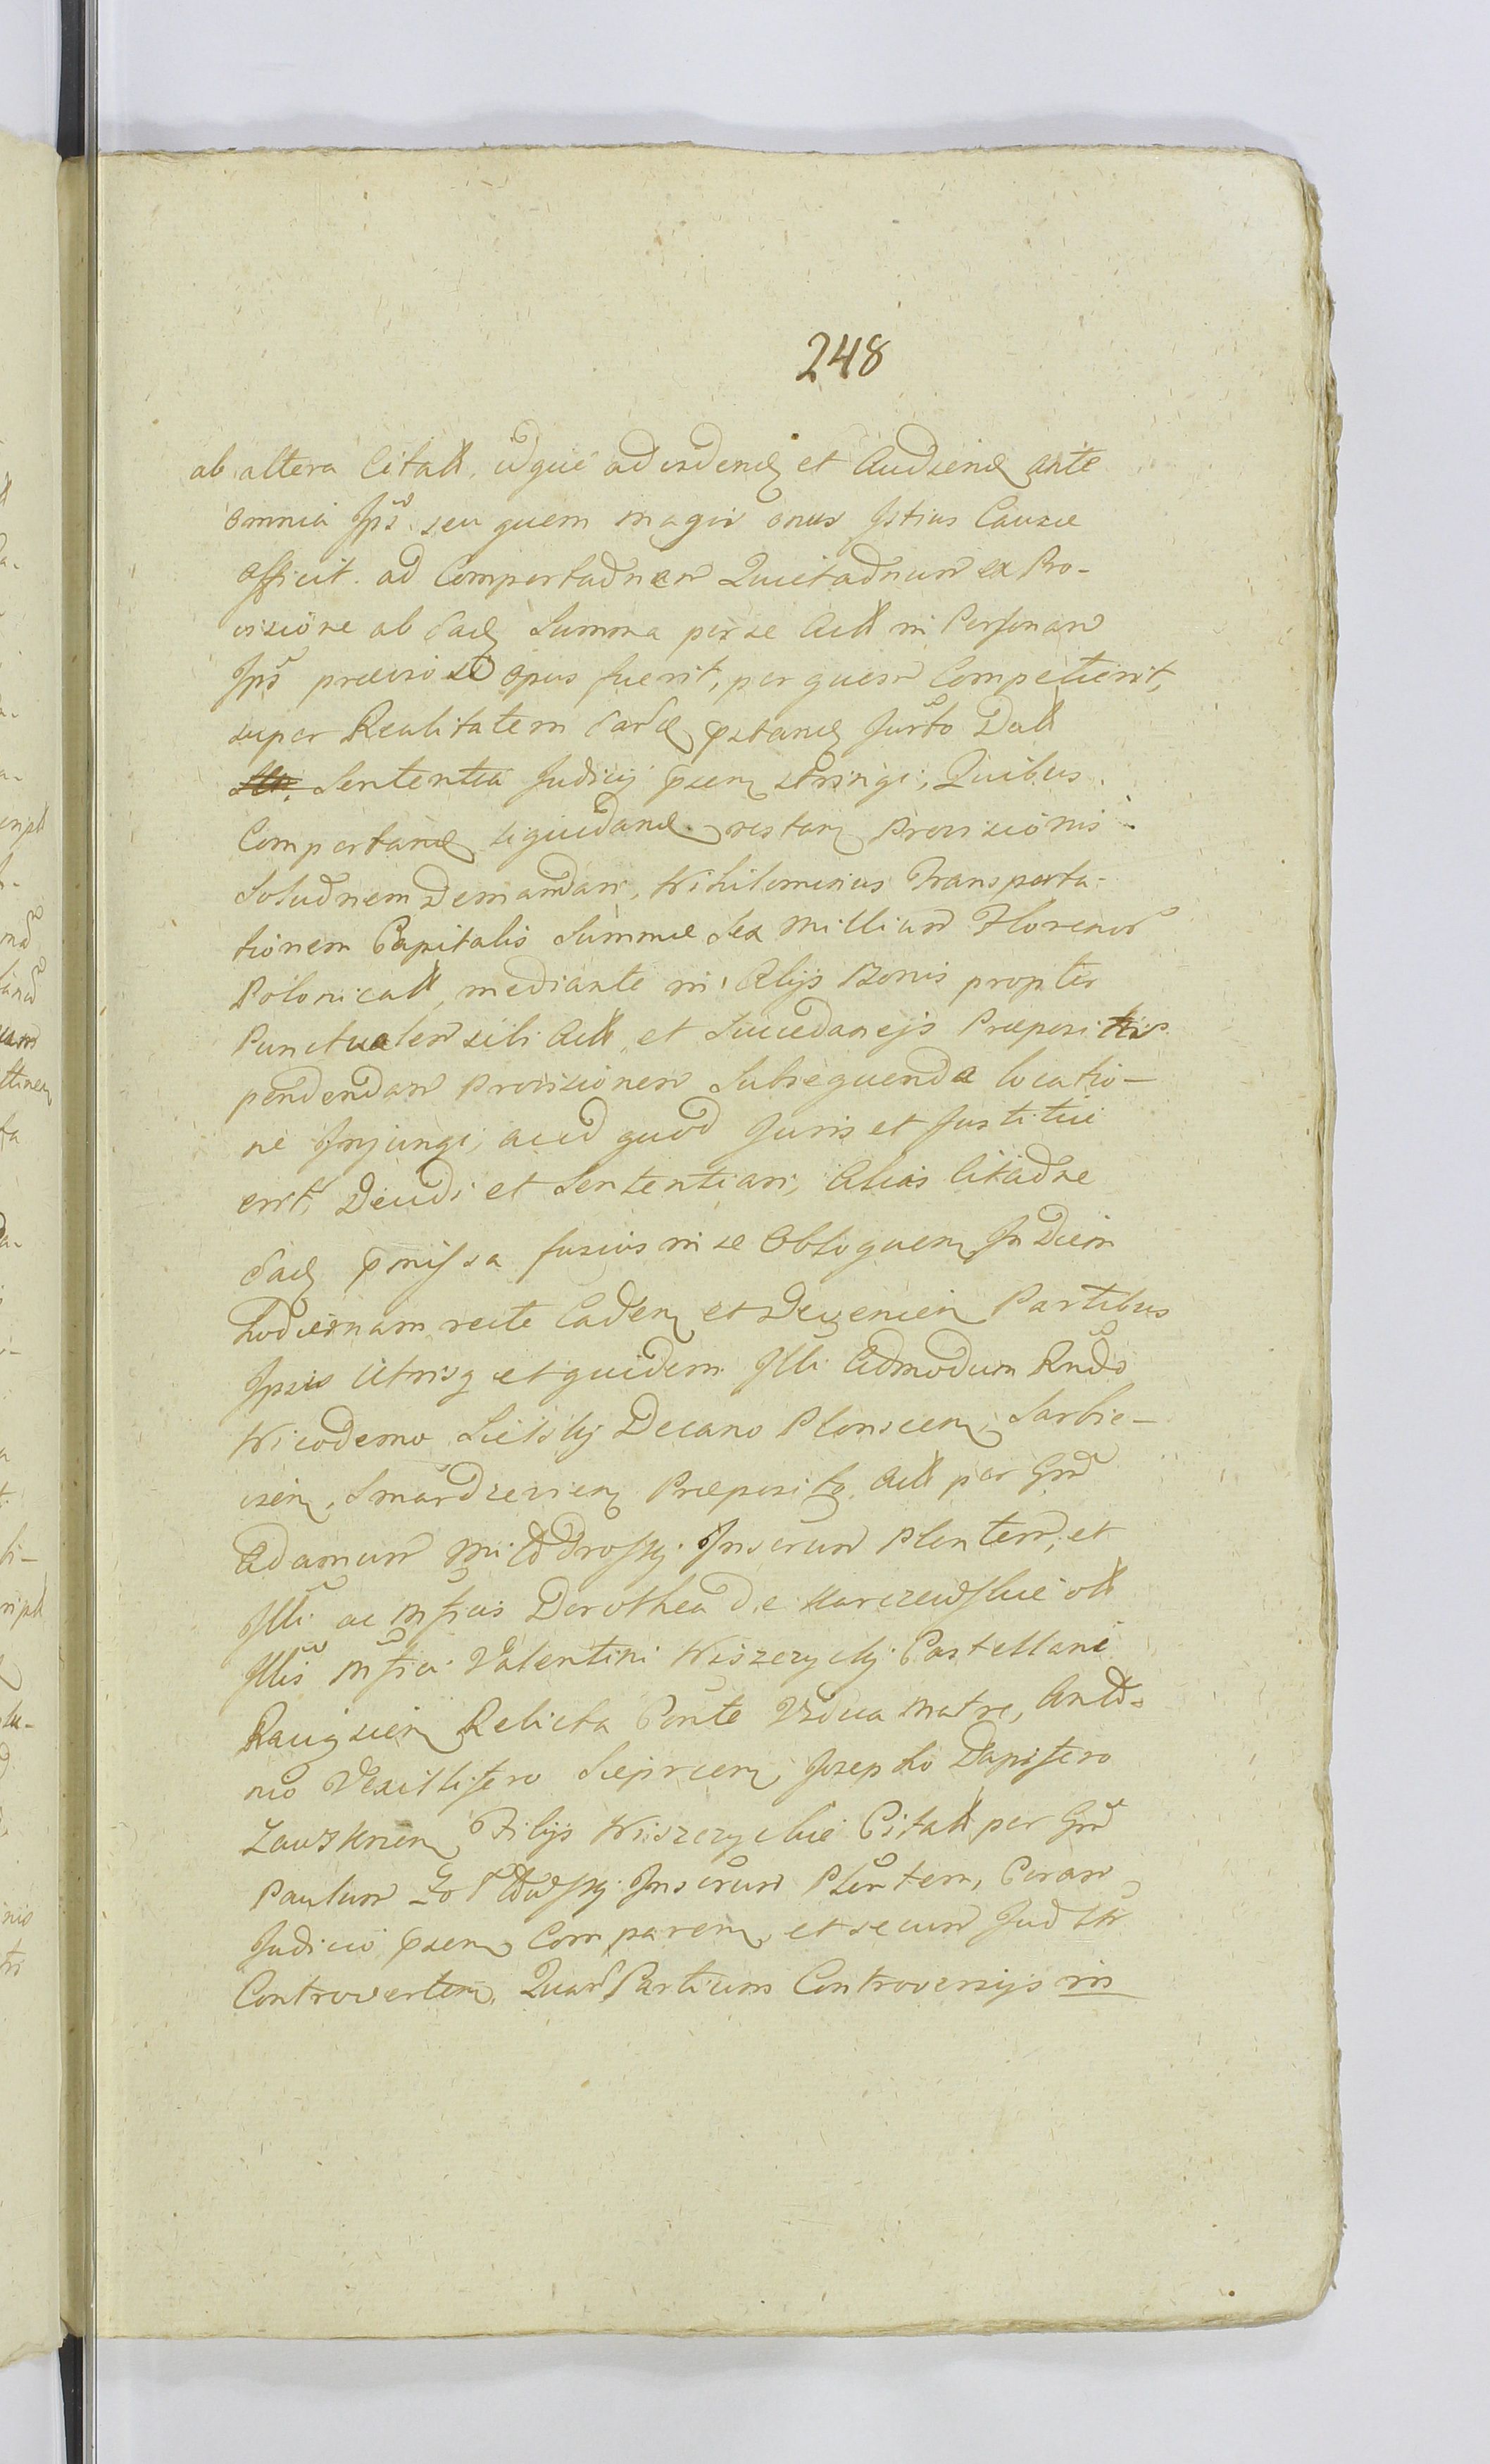 248
ab altera Citatt. idque ad videnď et Audienď ante
omnia Ipš. seu quem magis onus Istius Causae
afficit. ad Comportaďnem Quietaďnum ex Pro-
visione ab ead Summa per se Actt in Personam
Ipš praevio si opus fuerit, per quem Competierit,
super Realitatem eard pstand Jurto Datt
Sententia Judicij pten stringi, Quibus
Comportand liquidand restan Provisionis
Soluďnem Demandari, Nihilominus Transporta-
tionem Capitalis Summae Sex Millium Florenor
Polonicatt, mediante in Alijs Bonis propter
Punctualem sibi Actt et Succedanejs Praepositis
pendendam Provisionem Subsequenda locatio-
ne Injungi, acid quod Juris et Justitiae
erit, Decidi et Sententiari, Alias Citaďne
ead pmissa fusius in se Obloquen In Diem
hodiernam recte Caden et Devenien Partibus
Ipsis Utrisq et quidem Illi Admodum Rndo
Nicodemo Sielski Decano Plonscen, Sarbie-
vien, Smardzevien Praeposito Actt per Gnd
Adamum Modrosky Inscrum Plentem, et
Illi ac Mfica Dorothea de Karczewskie ott
Illis Mfici Valentini Niszczycky Castellani
Raciązien Relicta Conte Vidua Matre, Anto-
nio Vexillifero Sieprcen, Josepho Dapifero
Zawskrzen Filijs Niszczyckie Citatt per Gnd
Paulum Inscrum Plentem, Coram
Judicio psen Comparen et secum Jud Itr
Controverten, Quar Partium Controversijs in